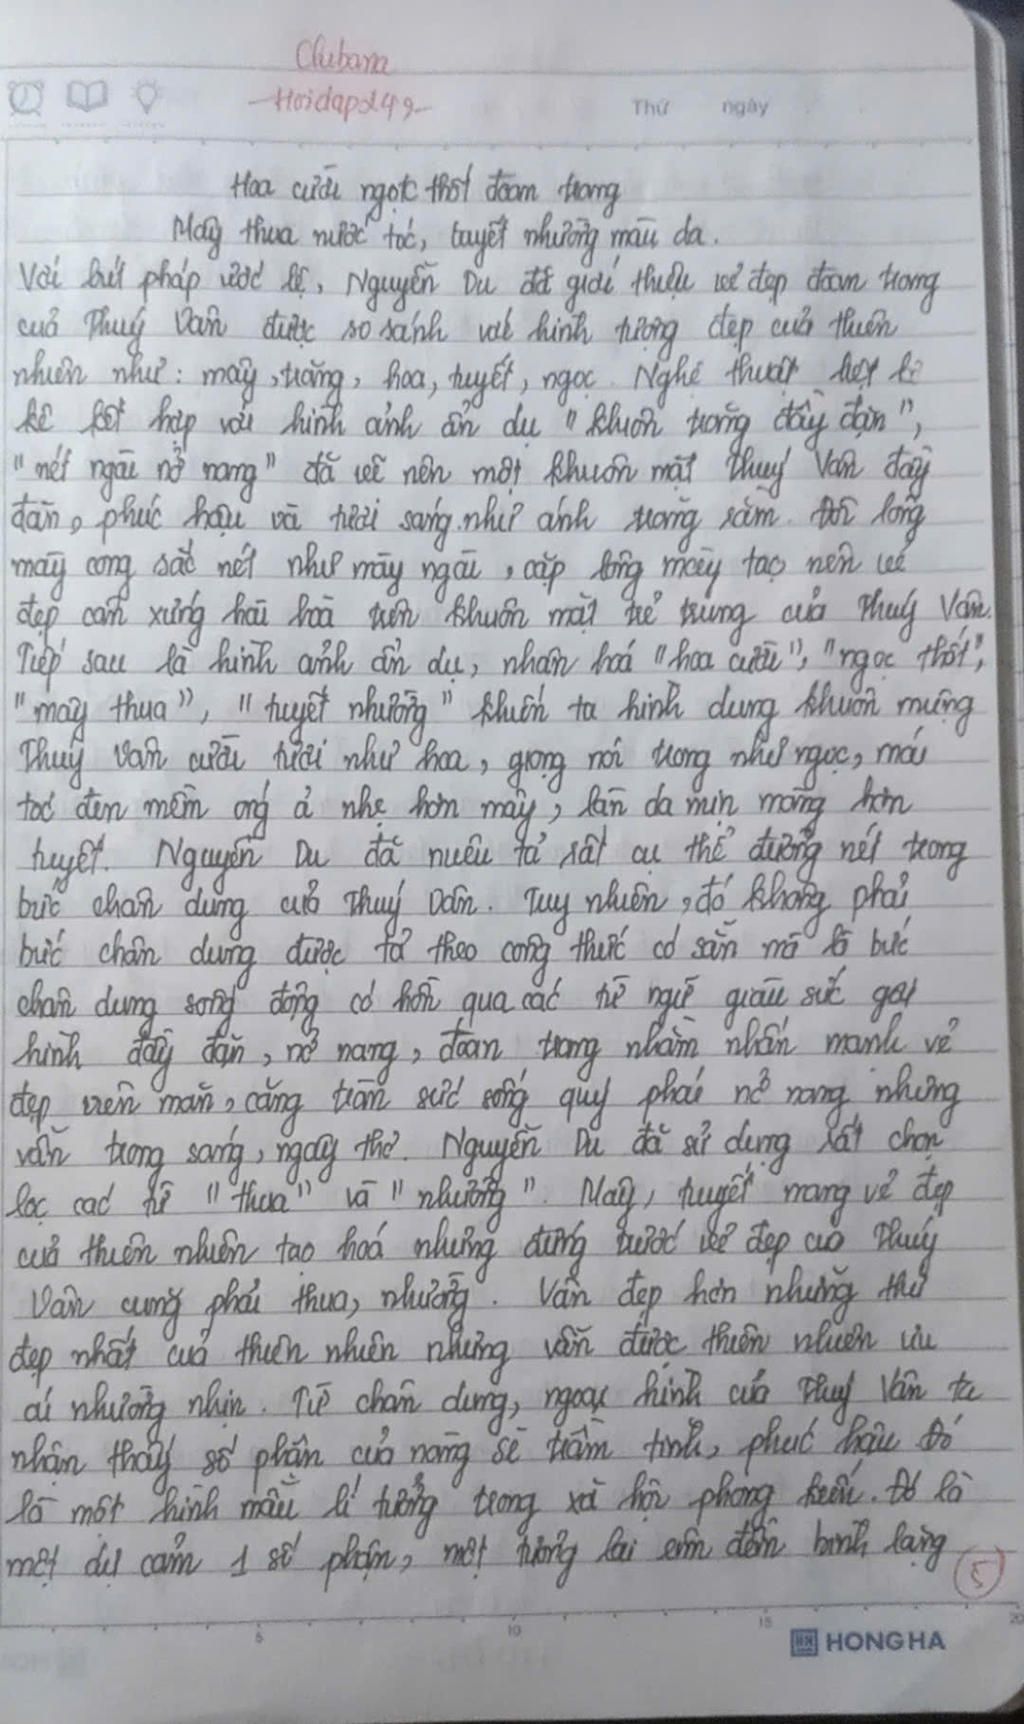 Chibana
-Hoidap249-
Thứ ngày
Hoa cười ngọc thốt đoan trang
Mây thua nước tóc, tuyết nhường màu da.
Với bút pháp ước lệ, Nguyễn Du đã giới thiệu vẻ đẹp đoan trang
của Thuý Vân được so sánh với hình tượng đẹp của thiên
nhiên như: mây, trăng, hoa, tuyết, ngọc. Nghệ thuật liệt
kê kết hợp với hình ảnh ẩn dụ "khuôn trăng đầy đặn",
"nét ngài nở nang" đã vẽ nên một khuôn mặt Thuý Vân đầy
đặn, phúc hậu và tươi sáng như ánh trăng rằm. Đôi lông
mày cong sắc nét như mày ngài, cặp lông mày tạo nên vẻ
đẹp cân xứng hài hoà trên khuôn mặt trẻ trung của Thuý Vân.
Tiếp sau là hình ảnh ẩn dụ, nhân hoá "hoa cười", "ngọc thốt",
"mây thua", "tuyết nhường" khiến ta hình dung khuôn miệng
Thuý Vân cười tươi như hoa, giọng nói trong như ngọc, mái
tóc đen mềm óng ả nhẹ hơn mây, làn da mịn màng hơn
tuyết. Nguyễn Du đã miêu tả rất cụ thể đường nét trong
bức chân dung của Thuý Vân. Tuy nhiên, đó không phải
bức chân dung được tả theo công thức có sẵn mà là bức
chân dung sống động có hồn qua các từ ngữ giàu sức gợi
hình đầy đặn, nở nang, đoan trang nhằm nhấn mạnh vẻ
đẹp viên mãn, căng tràn sức sống quý phái nở nang nhưng
vẫn trong sáng, ngây thơ. Nguyễn Du đã sử dụng rất chọn
lọc các từ "thua" và "nhường". Mây, tuyết mang vẻ đẹp
của thiên nhiên tạo hoá nhưng đứng trước vẻ đẹp của Thuý
Vân cũng phải thua, nhường. Vân đẹp hơn những thứ
đẹp nhất của thiên nhiên nhưng vẫn được thiên nhiên ưu
ái nhường nhịn. Từ chân dung, ngoại hình của Thuý Vân ta
nhận thấy số phận của nàng sẽ trầm tĩnh, phúc hậu. Đó
là một hình mẫu lí tưởng trong xã hội phong kiến. Đó là
một dự cảm 1 số phận, một tương lai êm đềm bình lặng
5
5 10 15 20
HONG HA